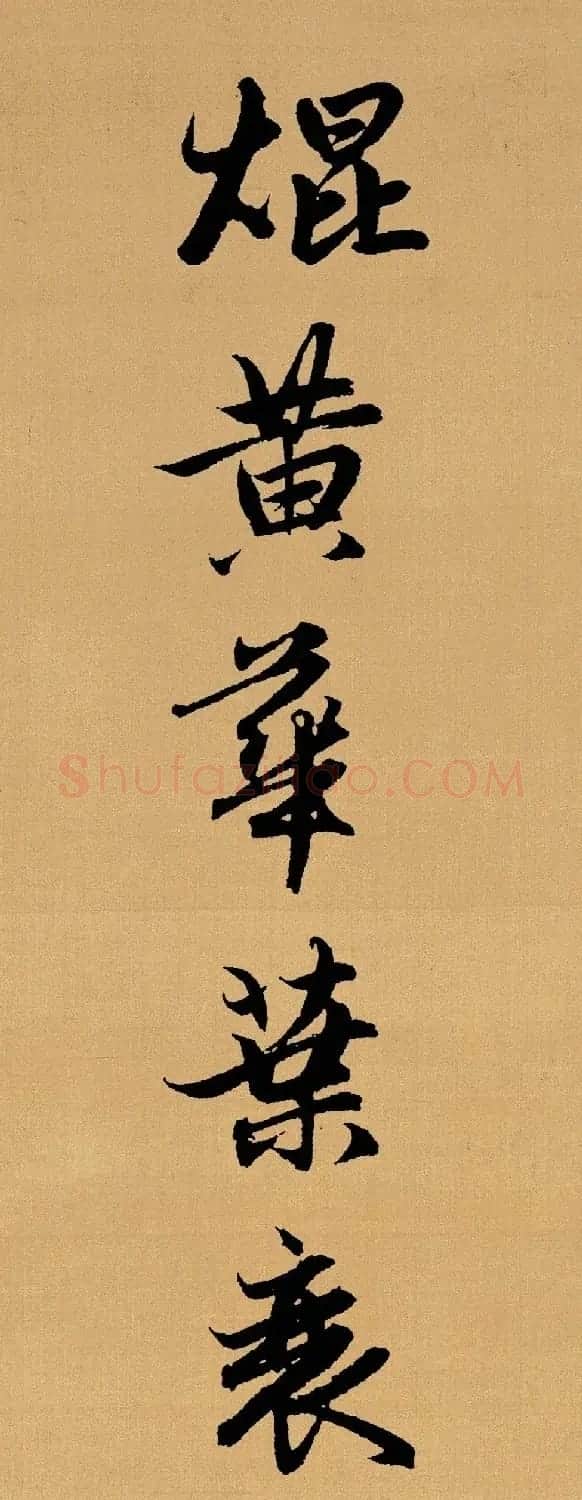 焜黄華葉衰
Shufaziliao.COM